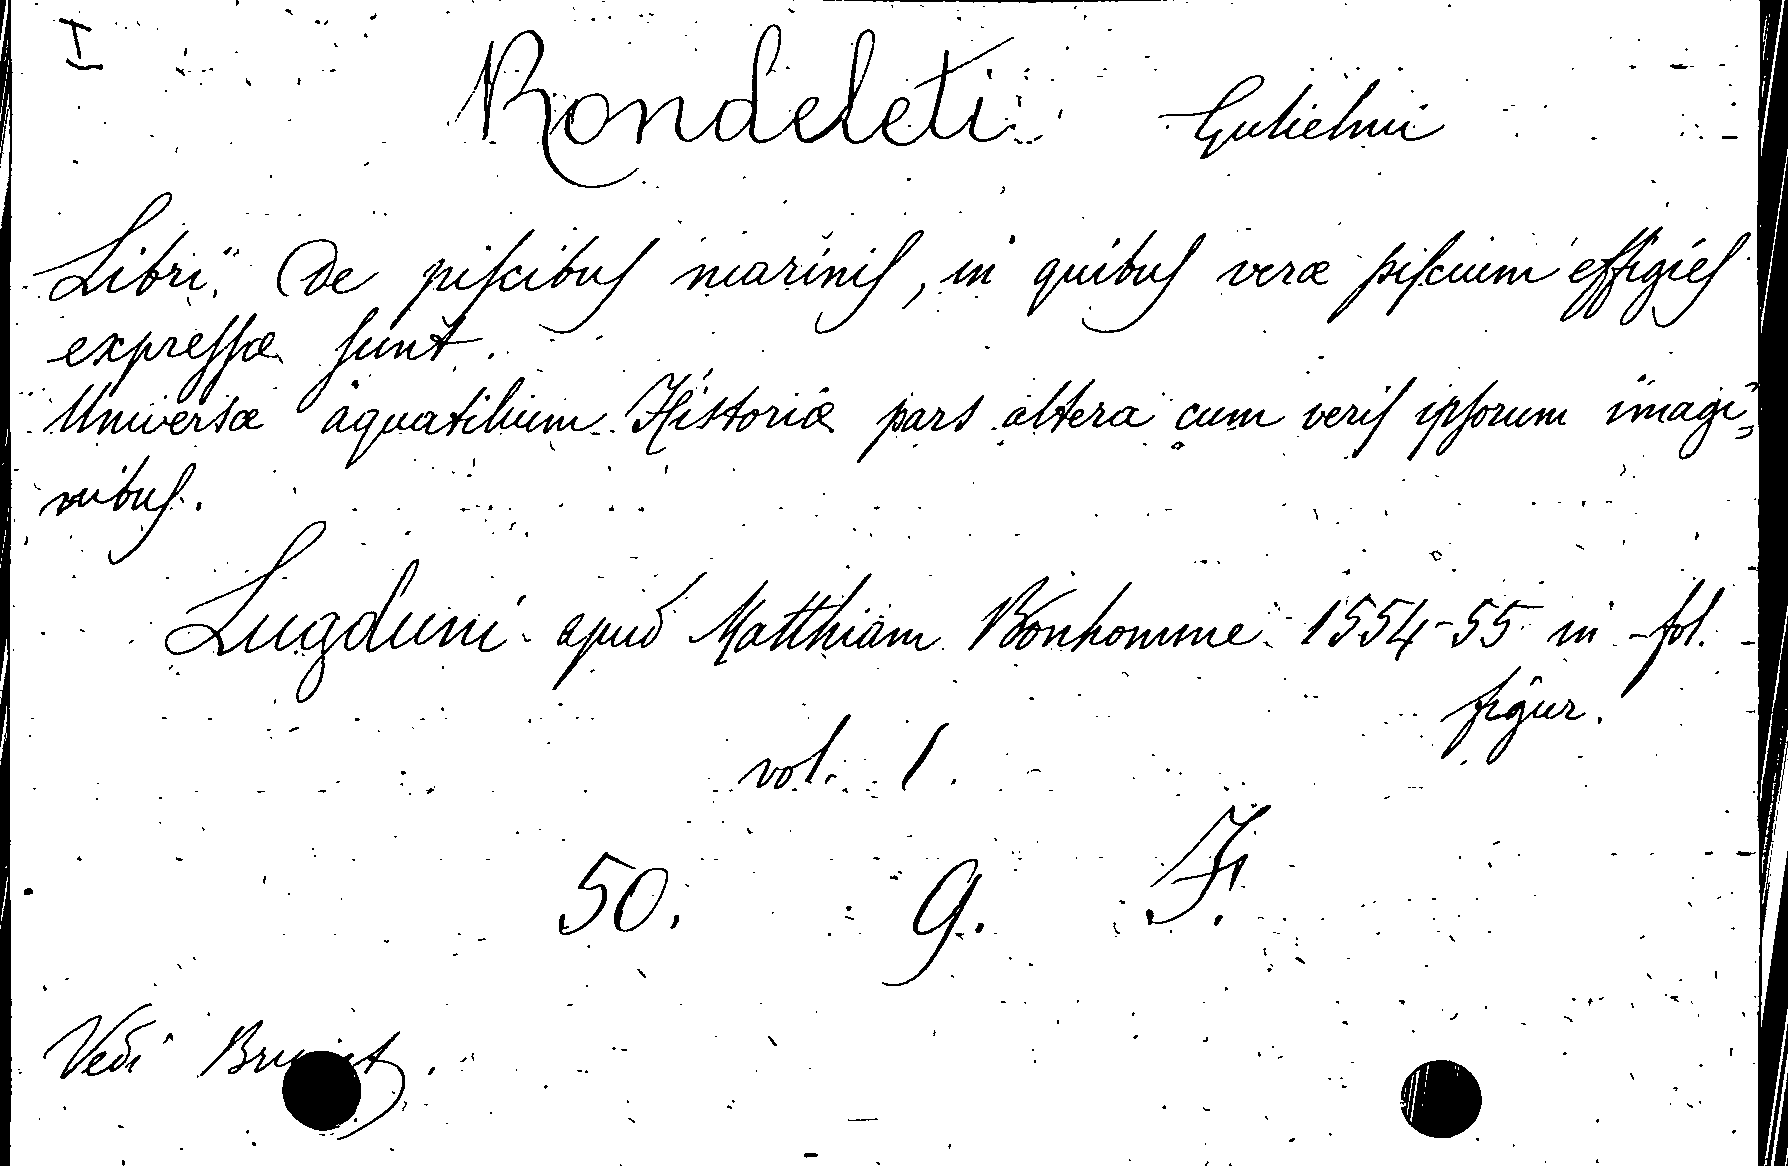 I
Rondeleti Gulielmi
Libri. De piscibus marinis, in quibus veræ piscium effigies
expressæ sunt.
Universæ aquatilium Historiæ pars altera cum veris ipsorum imagi=
nibus.
Lugduni apud Matthiam Bonhomme 1554-55 in fol.
figur.
vol. 1.
50. g. F.
Vedi